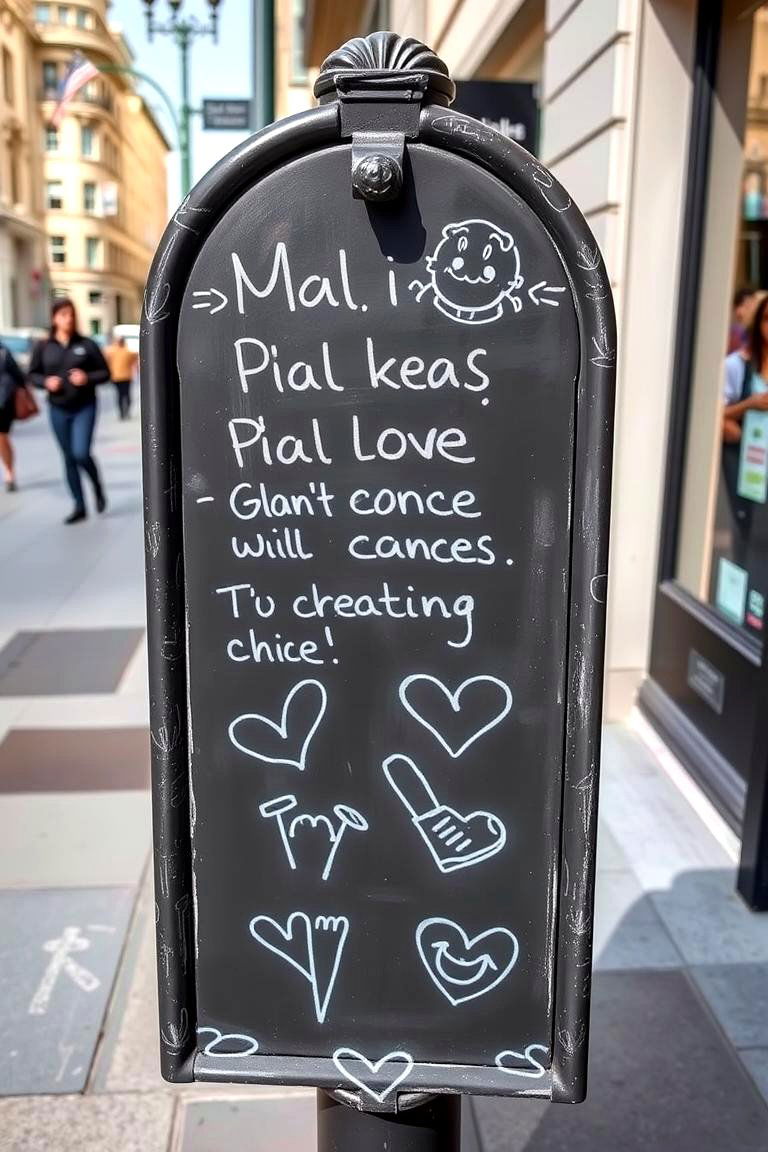 Mal. i
Pial keas
Pial Love
- Glan't conce
wiill cances.
T'u chreating
chice!